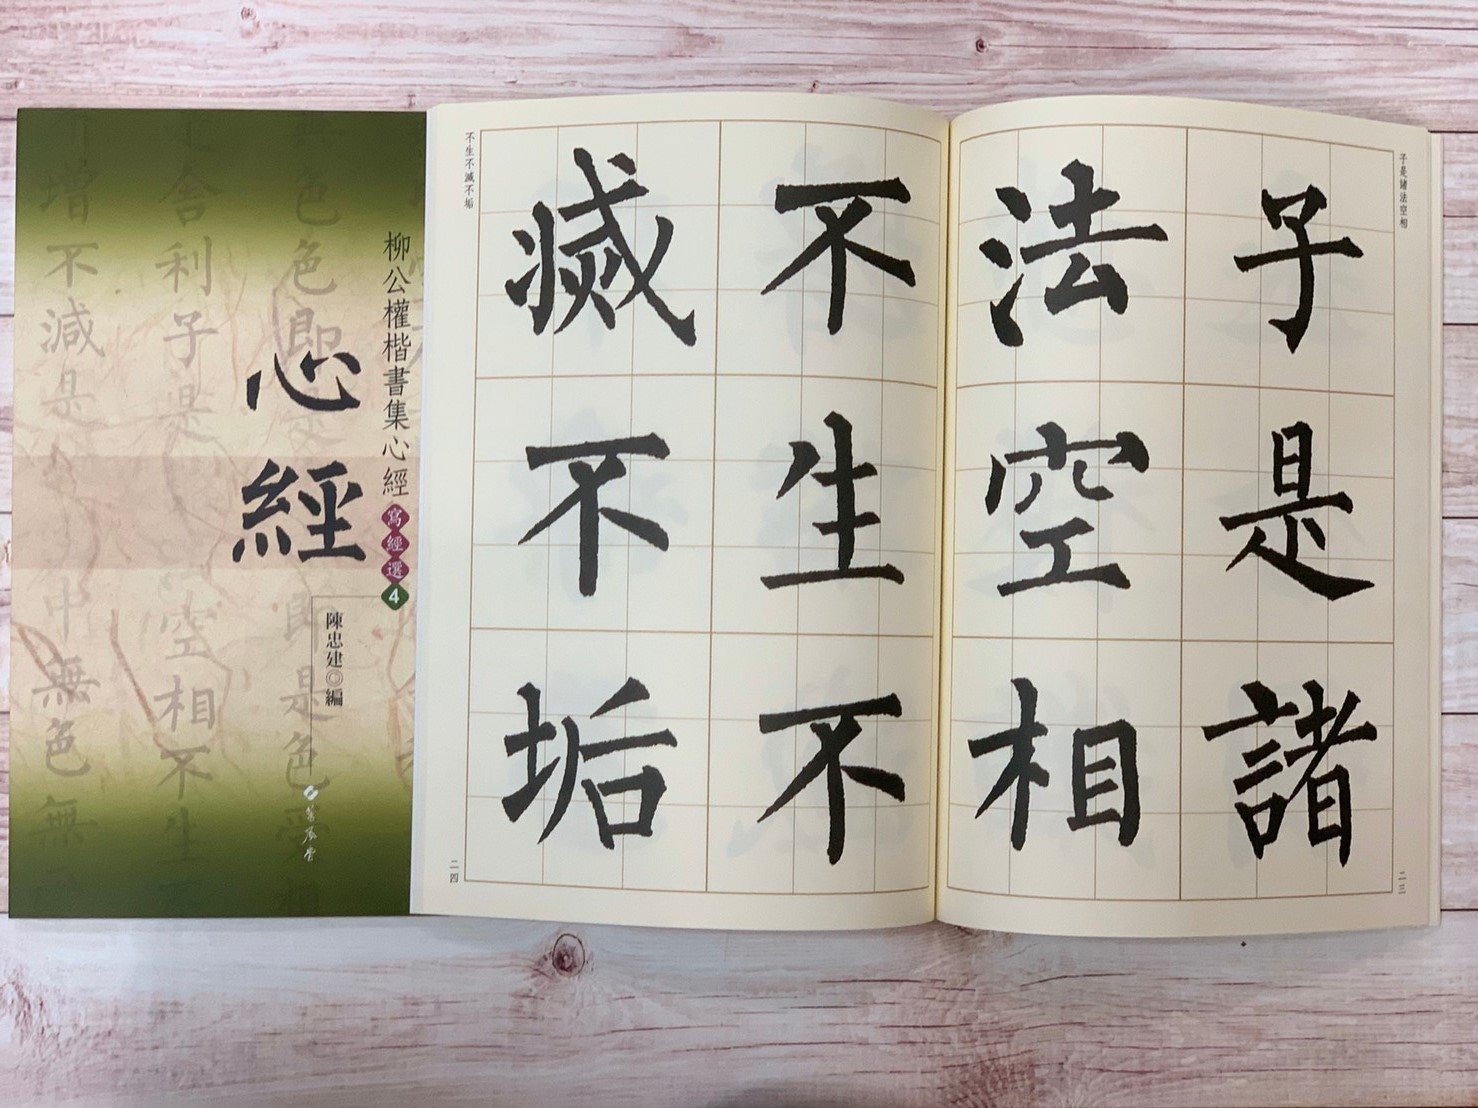 柳公權楷書集心經
寫經選4
心經
陳忠建◎編
子是諸法空相
子是諸
法空相
二三
不生不滅不垢
不生不
滅不垢
二四
色色即是
即是色受
舍利子是
空相不生
增不減是
中無色無